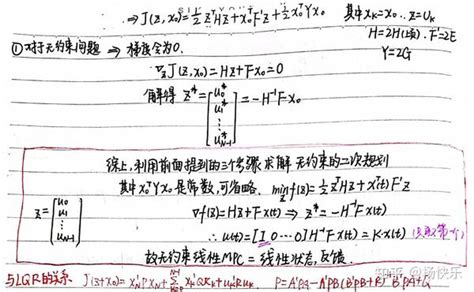 ⇒ J(z,x₀)=½z'Hz+x₀'F'z+½x₀'Yx₀ 其中 x_K=x₀ . z=U_K
H=2H(上标) . F'=2E
Y=2G
① 对于无约束问题 ⇒ 梯度会为0.
∇_z J(z,x₀)=Hz+Fx₀=0
解得 z*=[u₀* u₁* ⋮ u*_{N-1}]=-H⁻¹Fx₀
综上,利用前面提到的三个步骤求解 无约束的二次规划
其中 x₀ᵀYx₀ 是常数,可省略. min f(z)=½z'Hz+xᵀ(t)F'z
z=[u₀ u₁ ⋮ u_{N-1}] ∇f(z)=Hz+Fx(t) ⇒ z*=-H⁻¹Fx(t)
∴ u(t)=[I 0 ⋯ 0]H⁻¹Fx(t)=K·x(t) (只取第一个)
故无约束线性MPC = 线性状态反馈.
与LQR的关系 J(z,x₀)=x_N'Px_N+Σ x_K'Qx_K+u_K'Ru_K P=A'PA-A'PB(B'PB+R)⁻¹B'PA+Q
知乎 @杨快乐